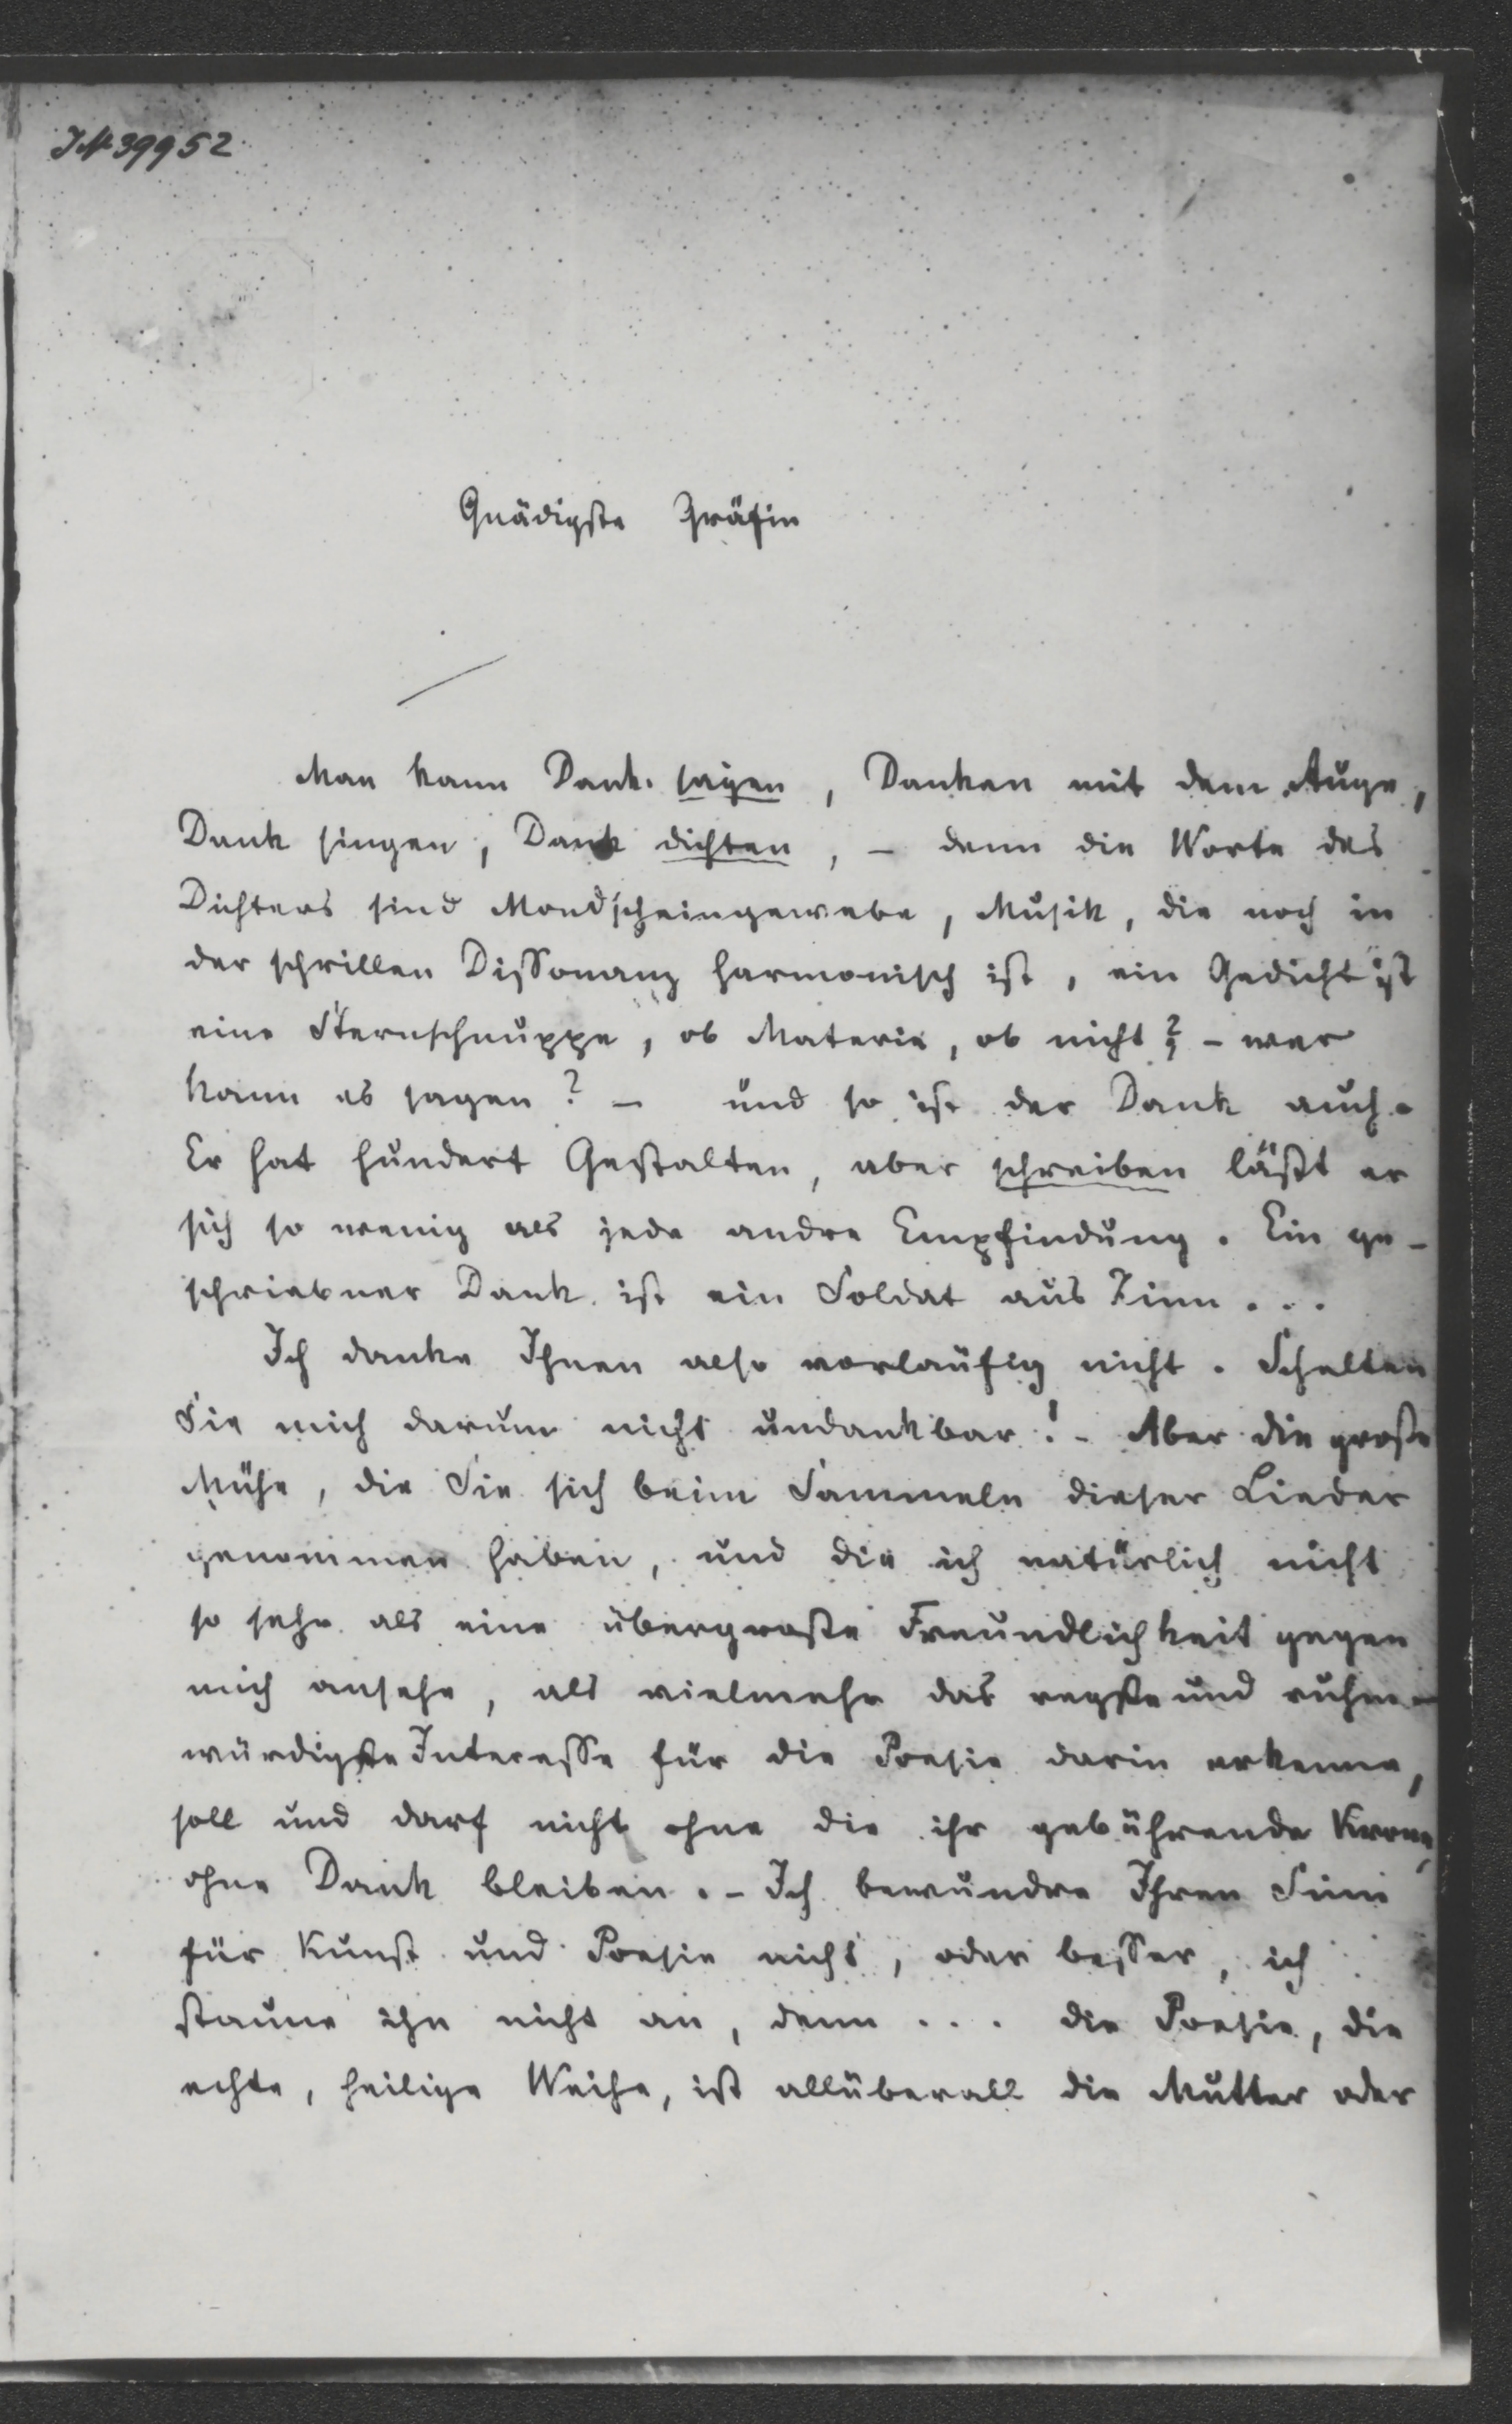 IN 39952
Gnädigste Gräfin
Man kann Dank sagen, Danken mit dem Auge,
Dank singen, Dank dichten, – denn die Worte des
Dichters sind Mondscheingewebe, Musik, die noch in
der schrillen Dissonanz harmonisch ist, ein Gedicht ist
eine Sternschnuppe, ob Materie, ob nicht? – wer
kann es sagen? – und so ist der Dank auch.
Er hat hundert Gestalten, aber schreiben läßt er
sich so wenig als jede andre Empfindung. Ein ge-
schriebner Dank ist ein Soldat aus Zinn...
Ich danke Ihnen also vorläufig nicht. Schelten
Sie mich darum nicht undankbar! – Aber die große
Mühe, die Sie sich beim Sammeln dieser Lieder
genommen haben, und die ich natürlich nicht
so sehr als eine übergroße Freundlichkeit gegen
mich ansehe, als vielmehr das regste und ruhm-
würdigste Interesse für die Poesie darin erkenne,
soll und darf nicht ohne die ihr gebührende Krone,
ohne Dank bleiben. – Ich bewundre Ihren Sinn
für Kunst und Poesie nicht, oder besser, ich
staune ihn nicht an, denn ... die Poesie, die
echte, heilige Weihe, ist allüberall die Mutter oder